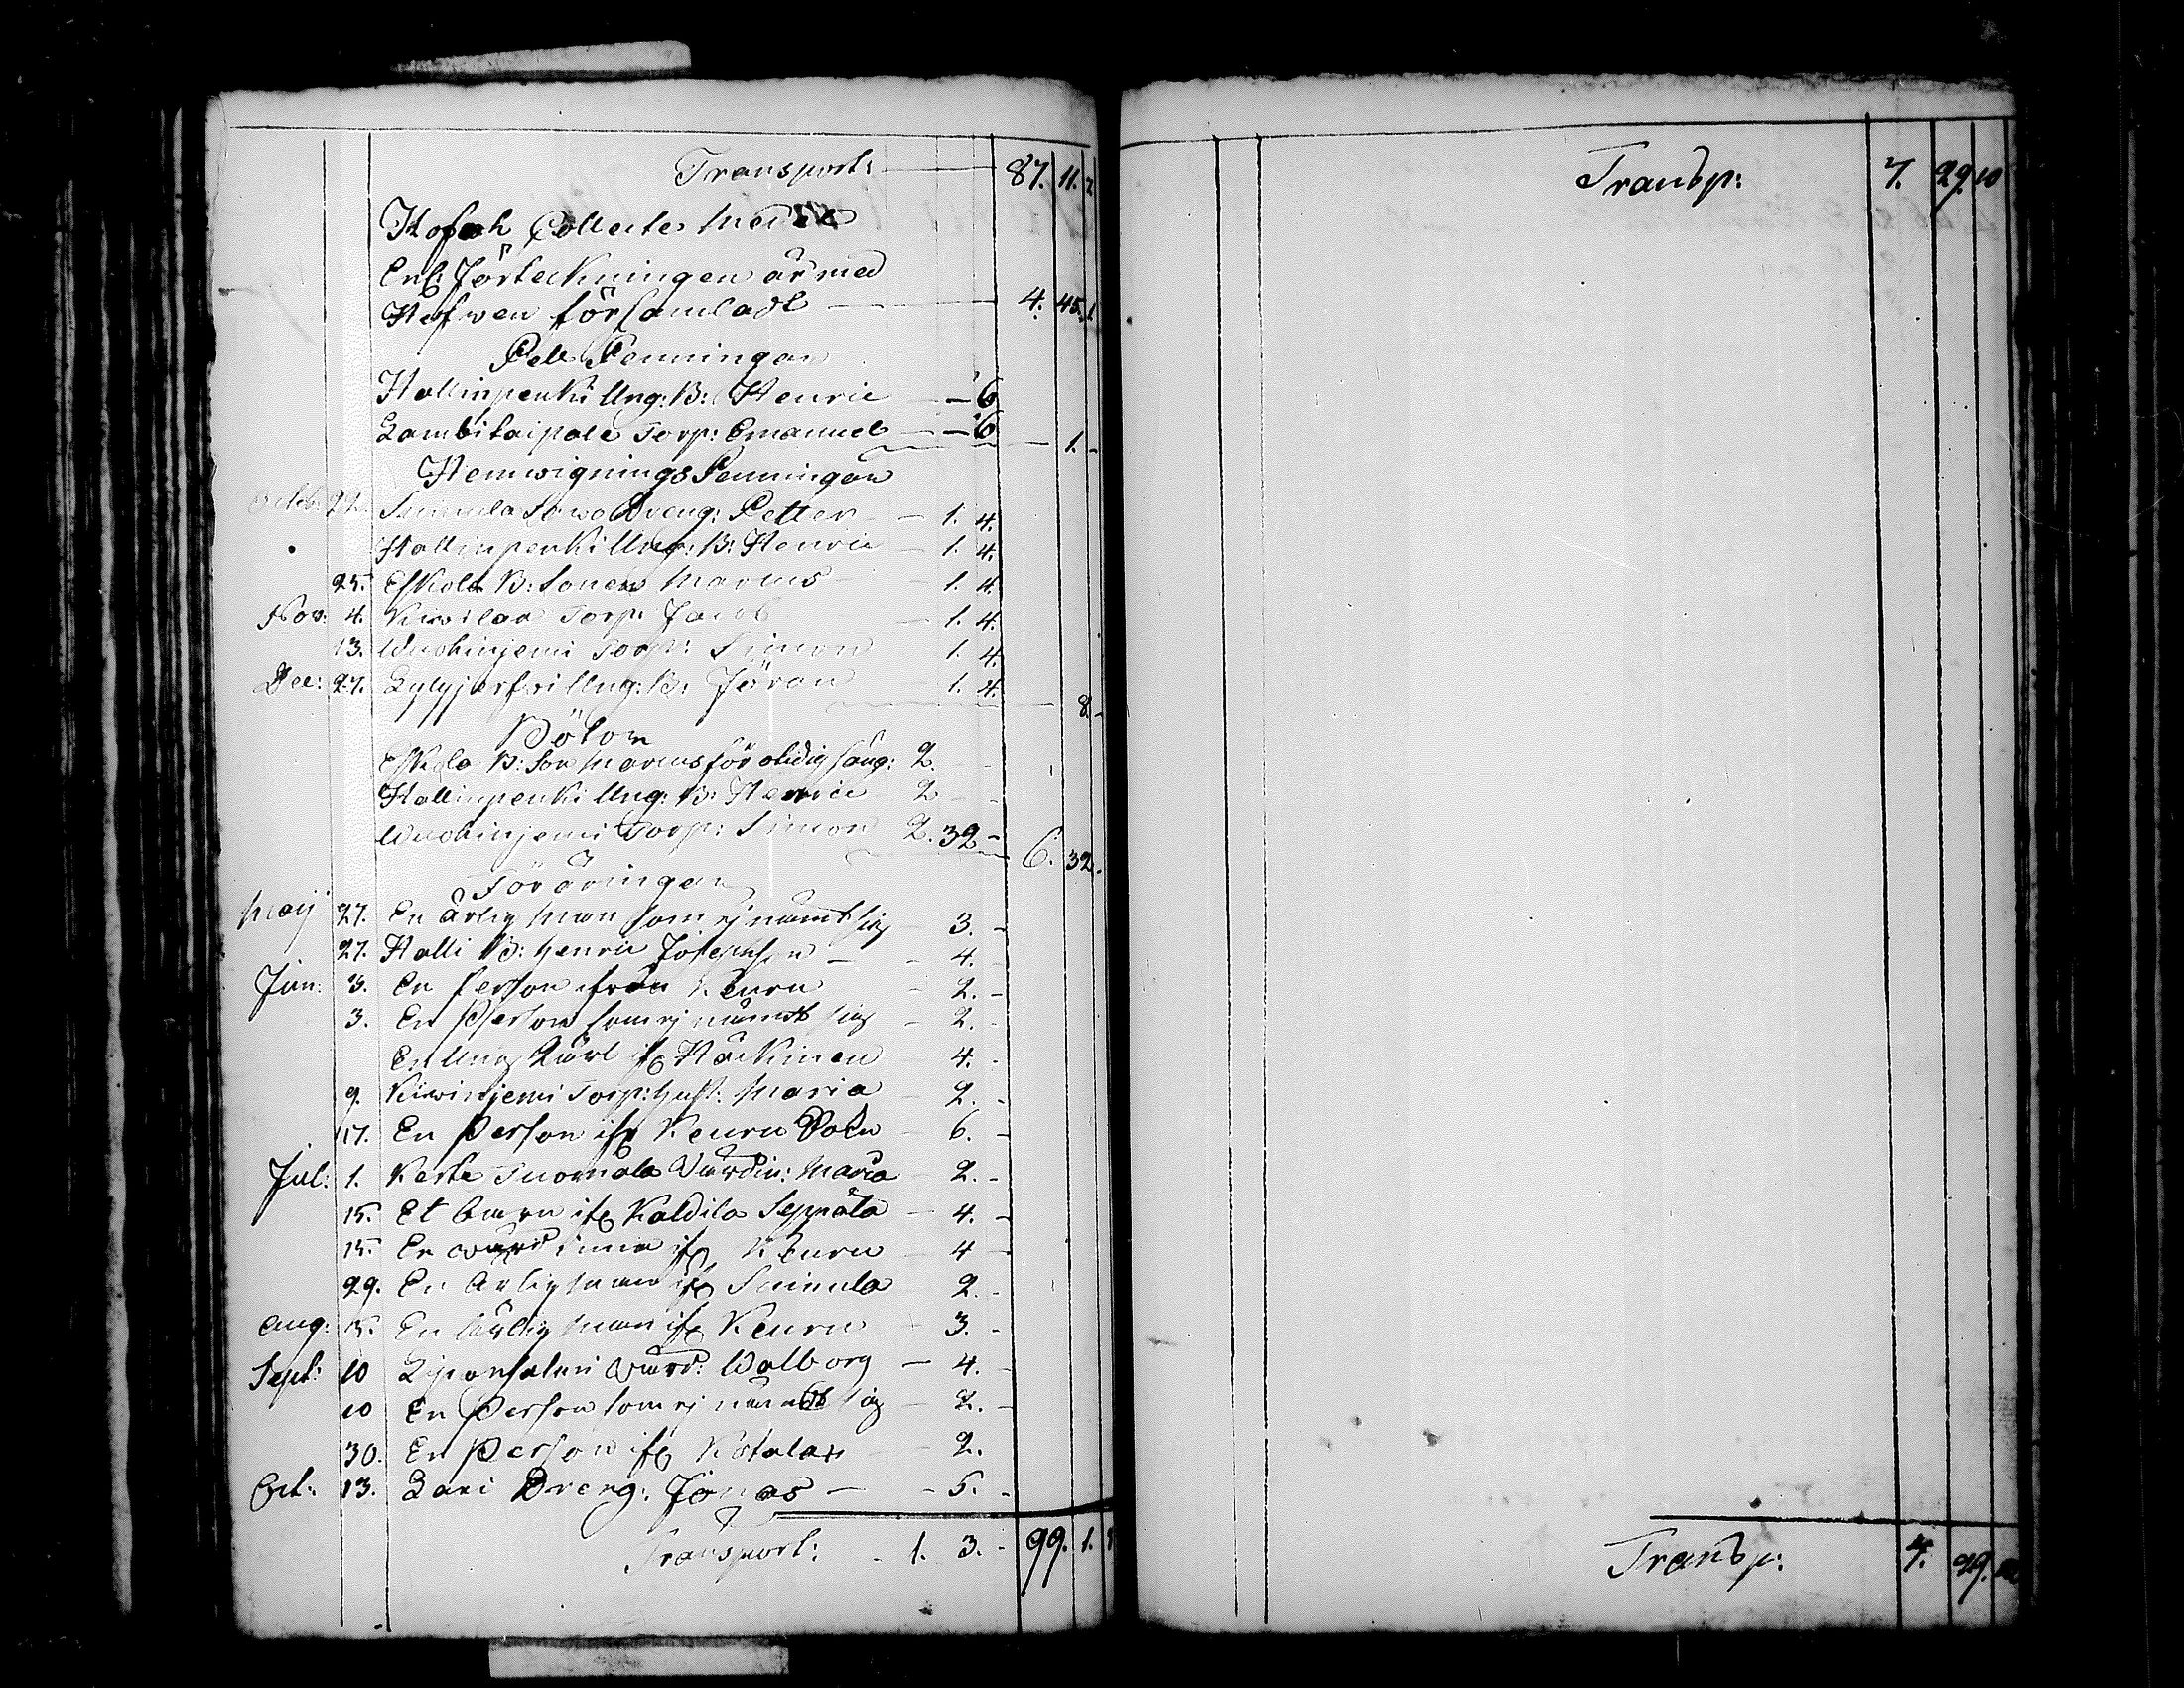 Transport: — 87. 11. 2
Hofwh Collecter Medel
Enl: Förteckningen är med
Hofwen församladt — 4. 45. 1.
Pell Penningar
Hallinpenki Ung: B: Henric — 6
Lambitaipale Torp: Emanuel — 6 — 1. -
Hemwignings Penningar
Octob: 22. Suinula Sowo Dreng: Petter — 1. 4.
Hallinpenki Ung: B: Henric — 1. 4.
25. Eskola B: Sonen Marcus — 1. 4.
Nov: 4. Kiwilax Torp: Jacob — 1. 4.
13. Wuohinjemi Torp: Simon 1. 4.
Dec: 27. Lylyjerfwi Ung: B: Jöran 1. 4. — 8. -
Böter
Eskola B: Son Marcus för otidig säng: 2. -
Hallinpenki Ung: B: Henric 2 - -
Wuohinjemi Torp: Simon 2. 32 - 6. 32.
Föräringar
Maij 27. En ärlig Man som ej nämt sig 3. -
27. Halli B: Henric Josephson — 4. -
Jun: 3. En Person ifrån Keuru - 2. -
3. En Person som ej nämdt sig - 2. -
En Ung Karl ifr Häckinen 4. -
9. Kiwinjemi Torp: Hust: Maria 2. -
17. En Person ifr Keuru 6. -
Jul: 1. Keske Tuomala Värdin: Maria 2. -
15. Et barn ifr Kaldila Seppälä — 4. -
15. En värdinna ifr Keuru — 4 -
29. En ärlig man ifr Suinula 2. -
Aug: 15. En ärlig Man ifr Keuru - 3. -
Sept: 10 Liponsalmi Värd: Walborg — 4. -
10 En Person som ej nämdt sig - 2. -
30. En Person ifr — 2.
Oct: 13. Lari Dreng: Jonas — - 5. -
Transport: - 1. 3. - 99. 1.
Transp: 7. 29 10
Transp: 7. 29.